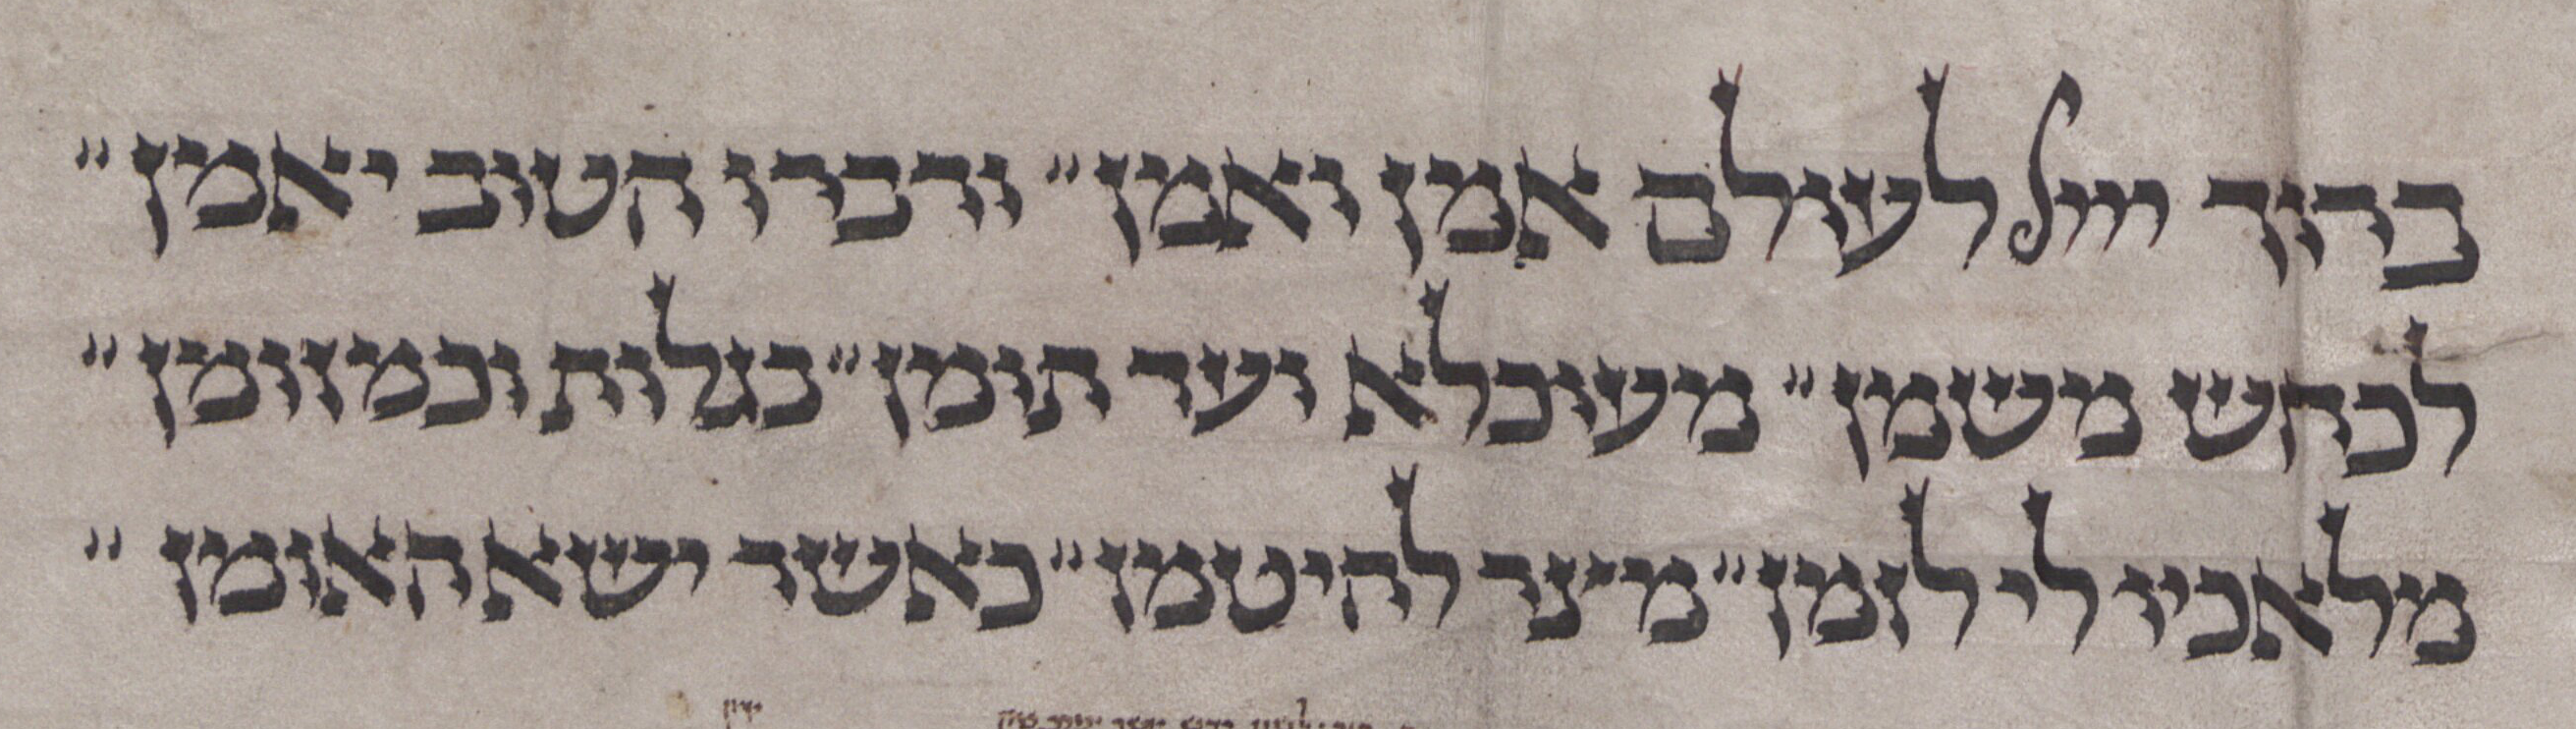 ברוך ייי לעולם אמן ואמן״ ודברו הטוב יאמן״
לכחש משמן״ מעוכלא ועד תומן״ בגלות וכמוומן״
מלאכיו לי לזמן״ מיצר להיטמן״ כאשר ישא האומן״